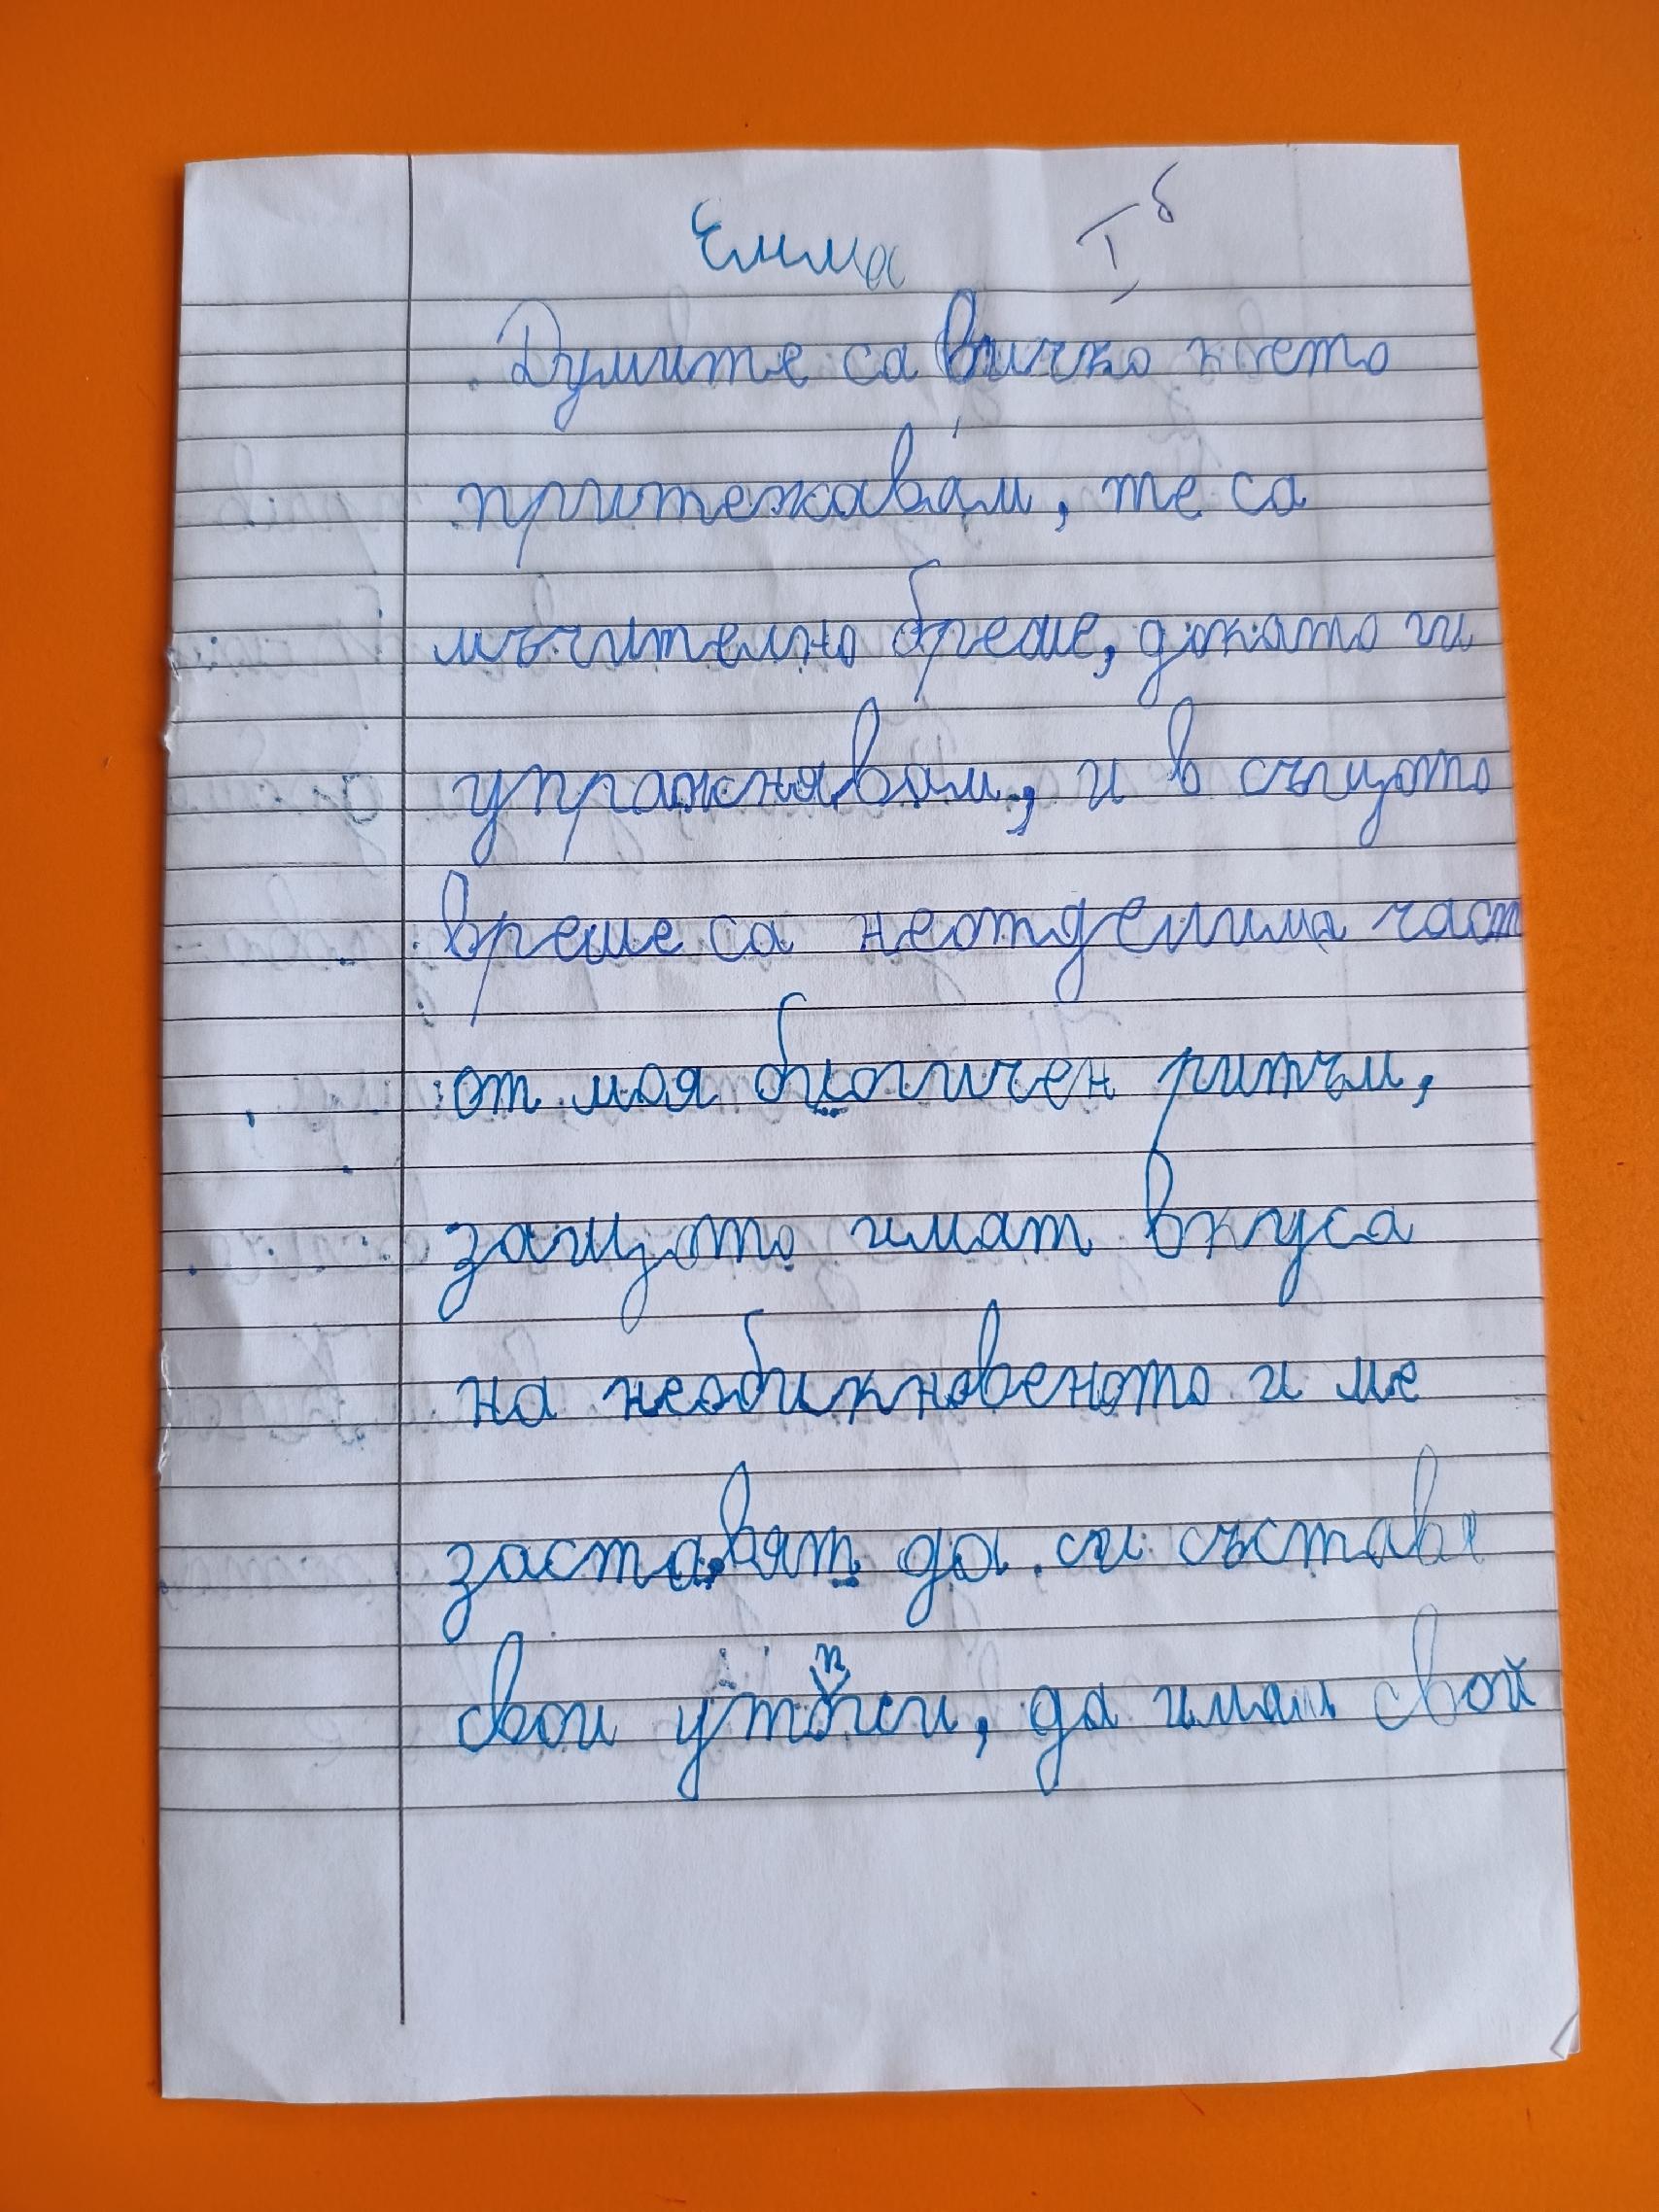 Емма I б
Думите са всичко което
притежавам, те са
мъчително бреме, докато ги
упражнявам, и в същото
време са неотделима част
от моя биогичен ритъм,
защото имат вкуса
на необикновеното и ме
заставят да си съставя
свои утопси, да имам свой